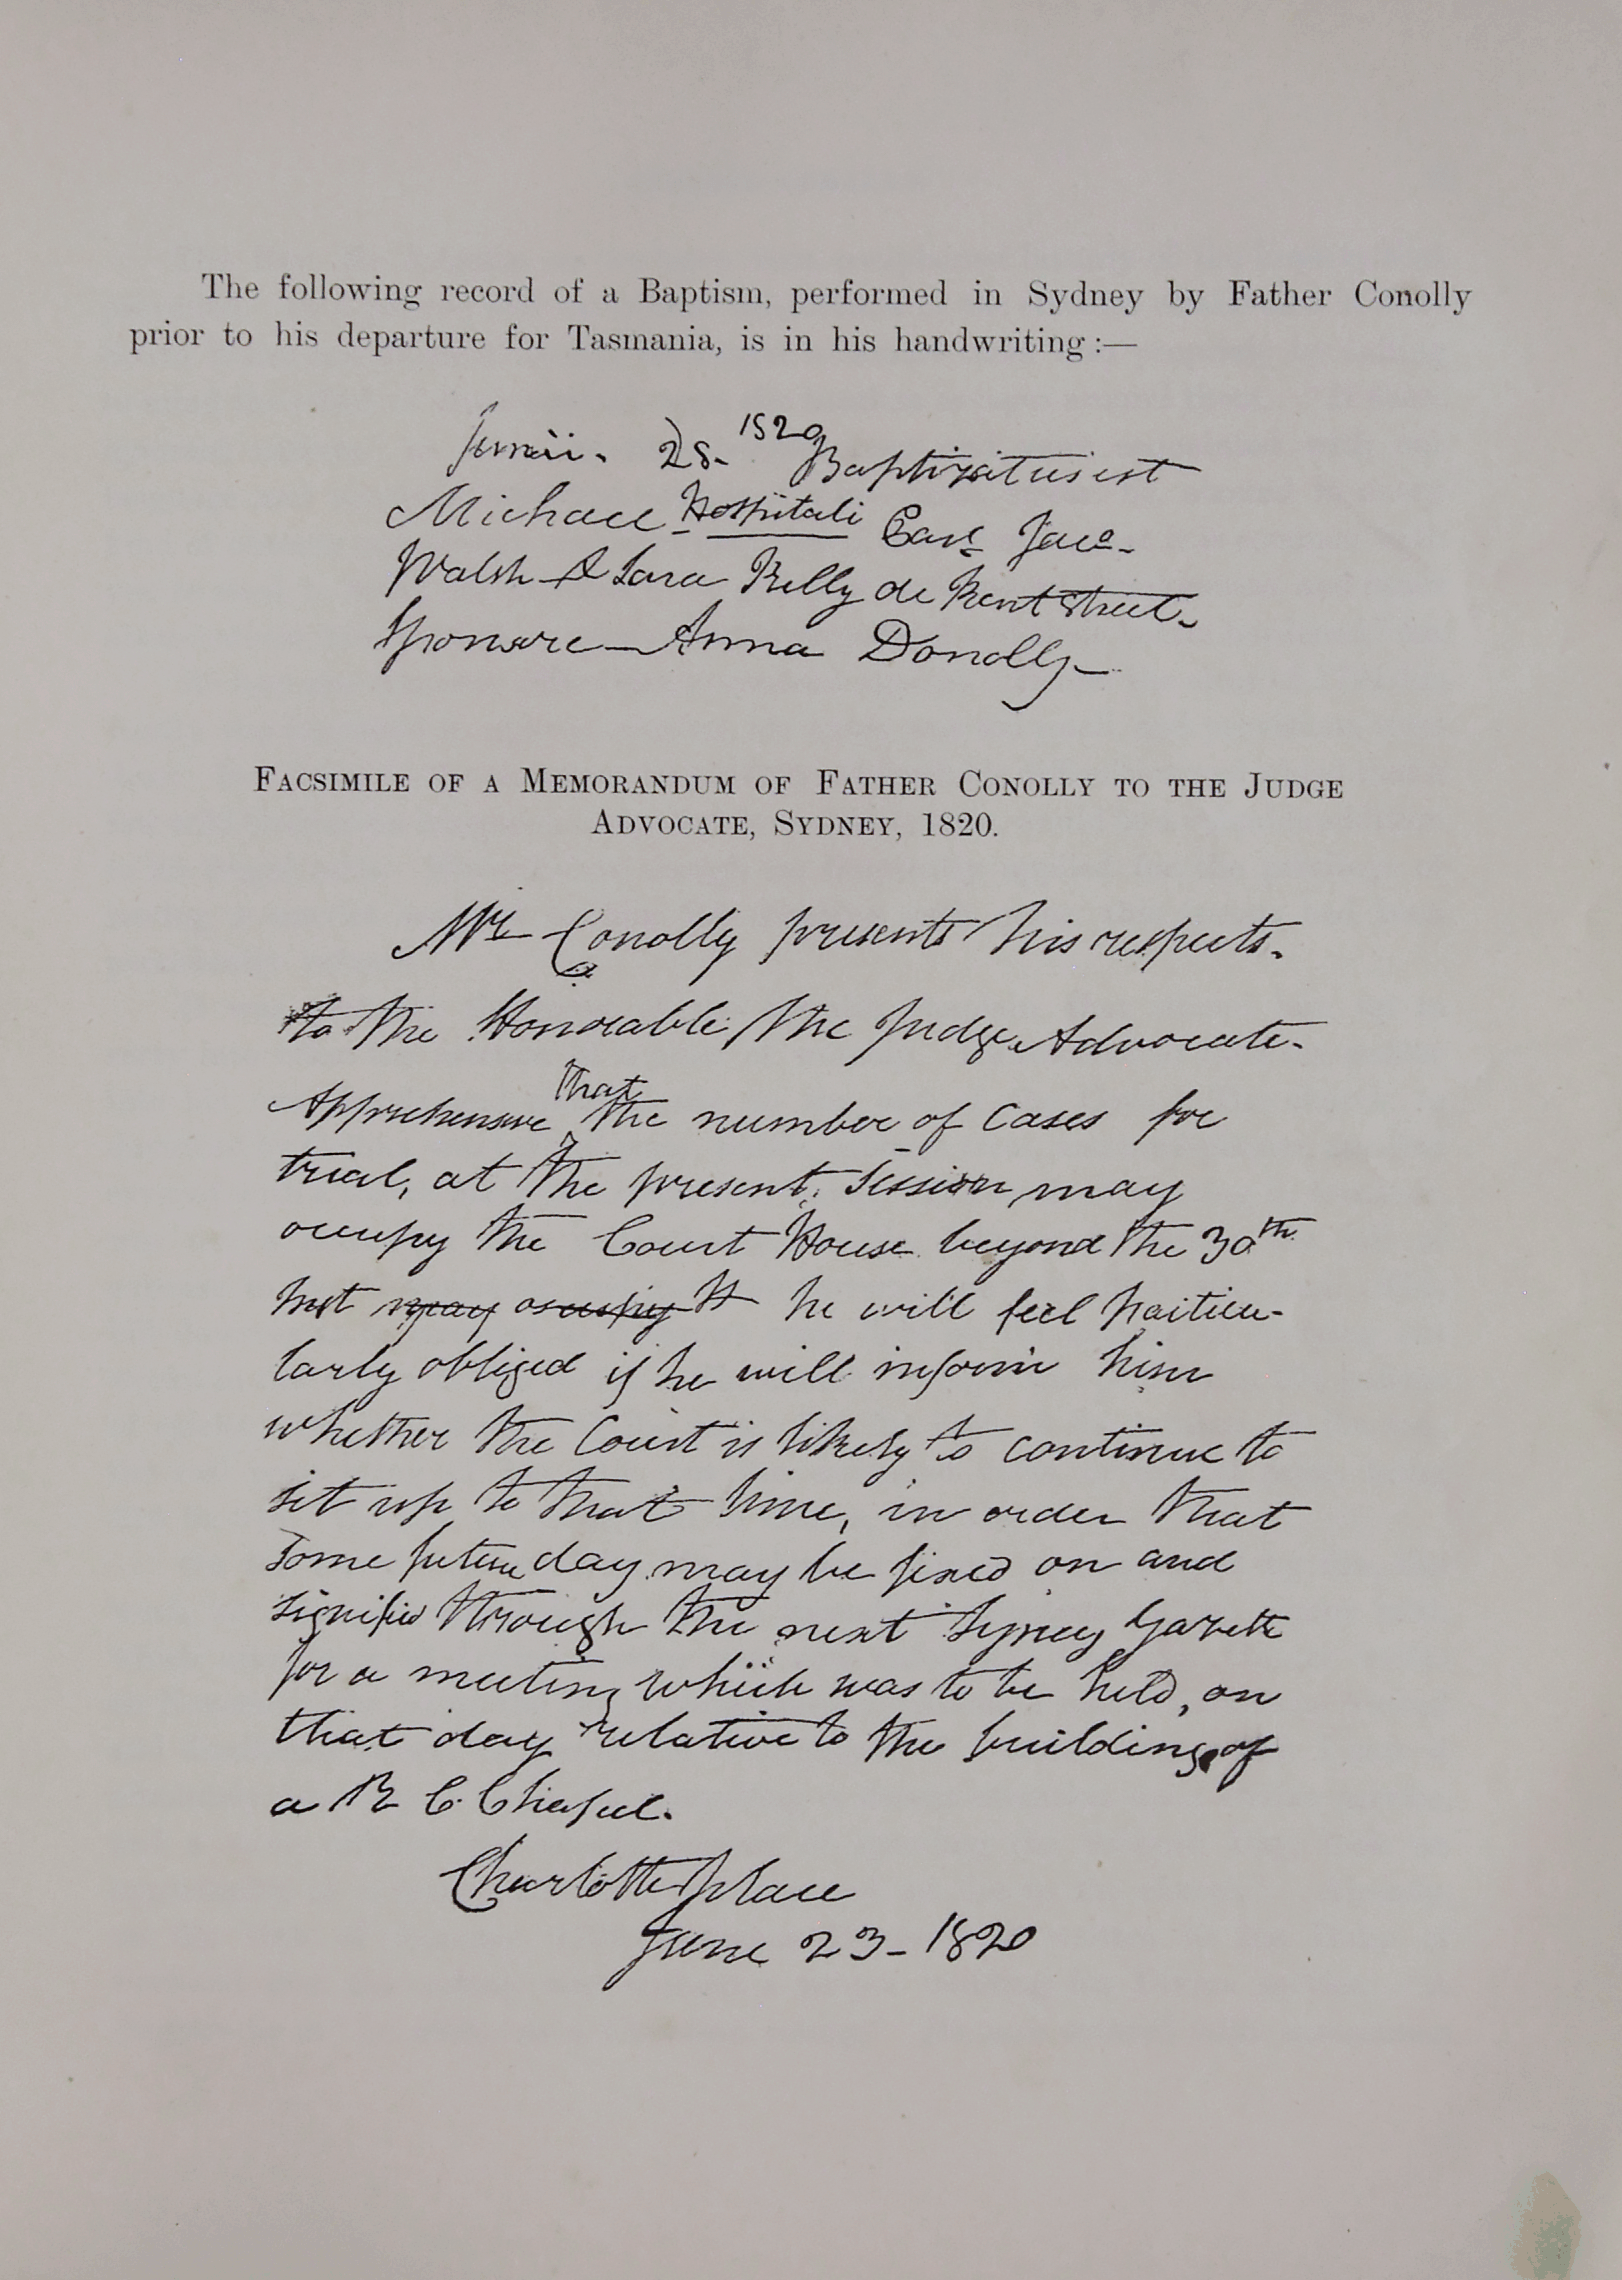 The following record of a Baptism, performed in Sydney by Father Conolly
prior to his departure for Tasmania, is in his handwriting :—
Junii. 28. 1820 Baptizatus est
Michael Hospitali
Walsh & Sara Kelly de Kent Street.
Sponsore — Anna Donolly
FACSIMILE OF A MEMORANDUM OF FATHER CONOLLY TO THE JUDGE
ADVOCATE, SYDNEY, 1820.
Mr Conolly presents his respects.
to the Honorable the Judge Advocate.
Apprehensive that the number of cases for
trial, at the present Session may
occupy the Court House beyond the 30th
Inst may occupy it he will feel particu-
larly obliged if he will inform him
whether the Court is likely to continue to
sit up to that time, in order that
some future day may be fixed on and
signified through the next Sydney Gazette
for a meeting which was to be held, on
that day relative to the building of
a R C Chapel.
Charlotte place
June 23 - 1820